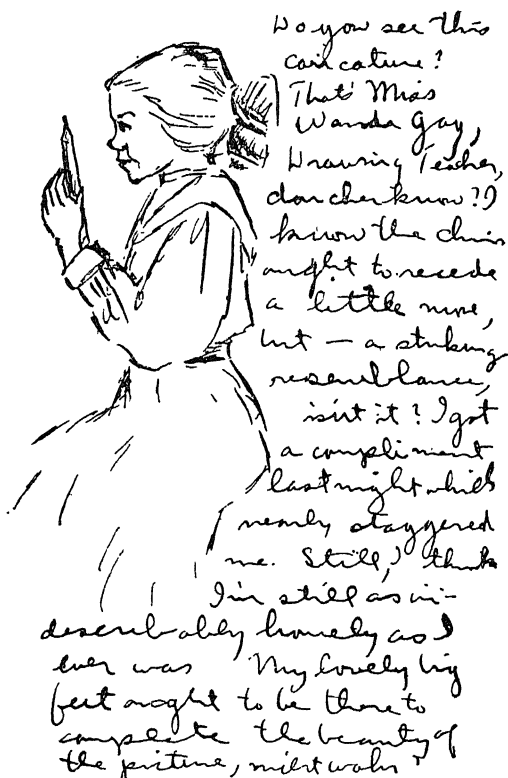 Do you see this
caricature?
That's Miss
Wanda Gag,
Drawing Teacher,
dontcherknow? I
know the chin
ought to recede
a little more,
but — a striking
resemblance,
isn't it? I got
a compliment
last night which
nearly staggered
me. Still, I think
I'm still as in-
describably homely as I
ever was. My lovely big
feet ought to be there to
complete the beauty of
the picture, nicht wahr?